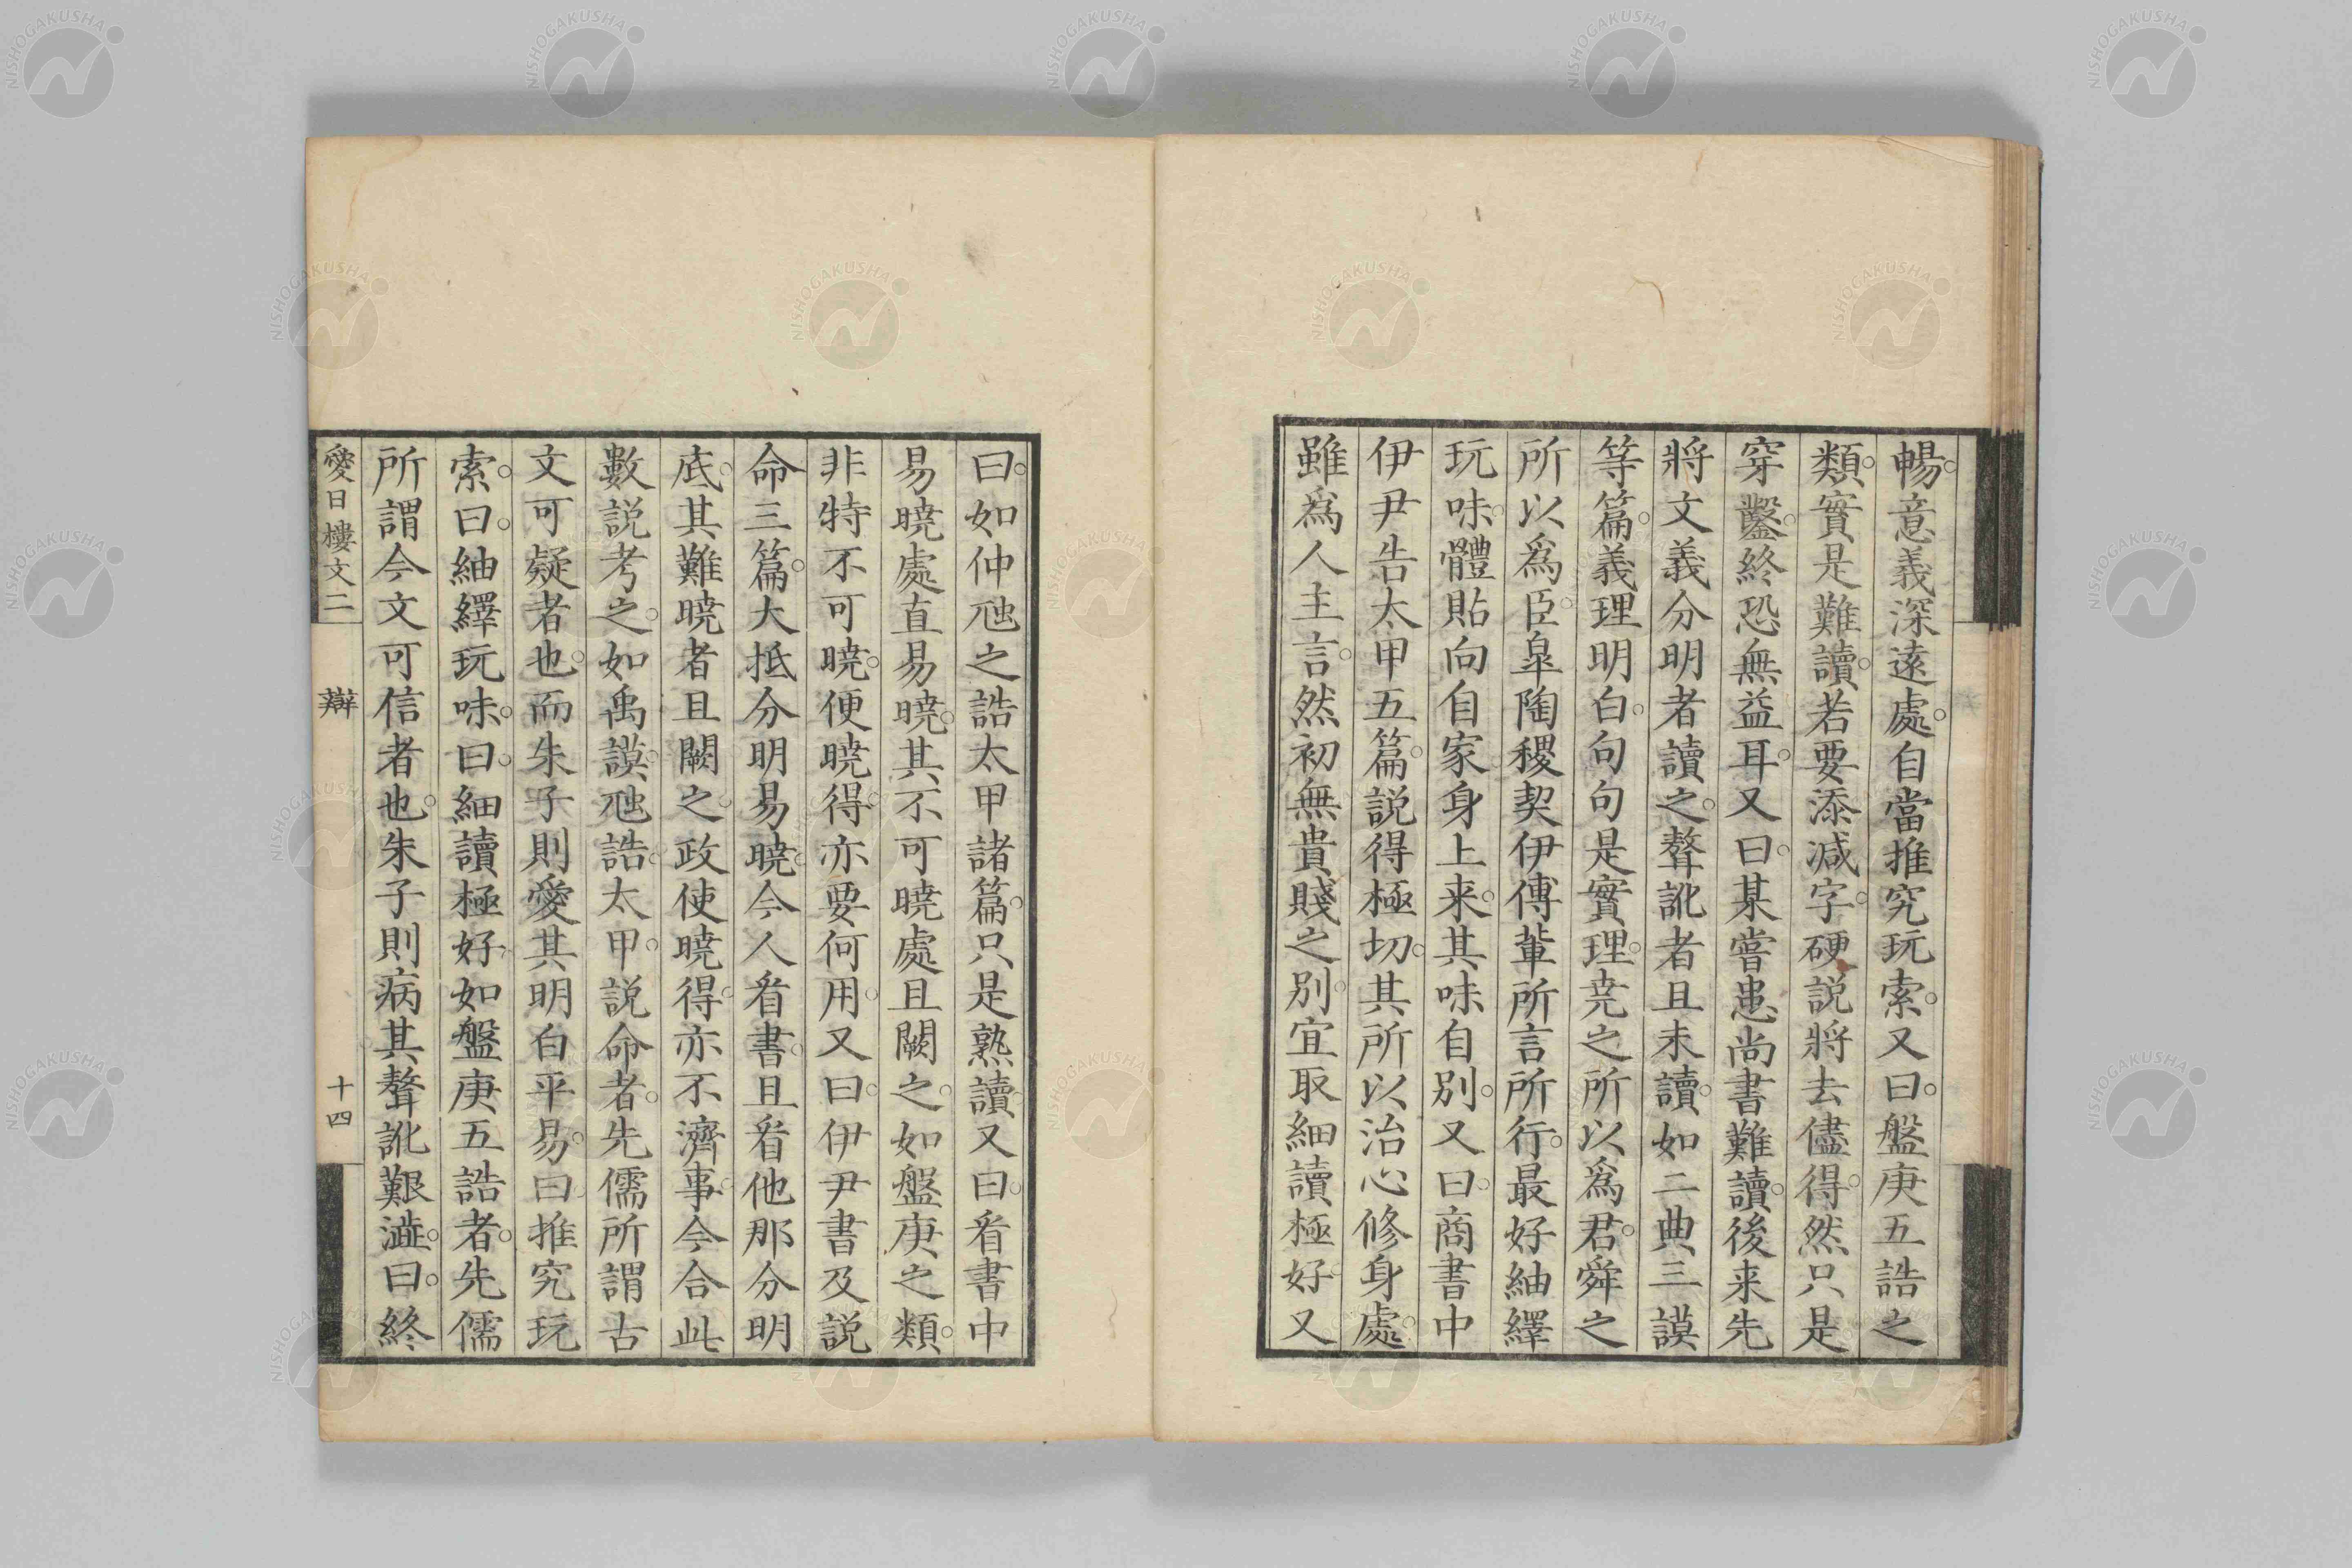 暢。意義深遠處。自當推究玩索。又曰。盤庚五誥之
類。實是難讀。若要添減字。硬說將去儘得。然只是
穿鑿。終恐無益耳。又曰。某嘗患尚書難讀。後来先
將文義分明者讀之。聱訛者且未讀。如二典三謨
等篇。義理明白。句句是實理。尭之所以爲君。舜之
所以爲臣。皐陶稷契伊傅輩所言所行。最好紬繹
玩味。體貼向自家身上来。其味自別。又曰。商書中
伊尹告太甲五篇。説得極切。其所以治心修身處。
雖爲人主言。然初無貴賤之別。宜取細讀極好。又
曰。如仲虺之誥太甲諸篇。只是熟讀。又曰。看書中
易曉處直易曉。其不可曉處且闕之。如盤庚之類。
非特不可曉。便曉得。亦要何用。又曰。伊尹書及説
命三篇。大抵分明易曉。今人看書。且看他那分明
底。其難曉者且闕之。政使曉得。亦不濟事。今合此
數説考之。如禹謨。虺誥。太甲。説命者。先儒所謂古
文可疑者也。而朱子則愛其明白平易。曰推究玩
索。曰。紬繹玩味。曰。細讀極好。如盤庚五誥者。先儒
所謂今文可信者也。朱子則病其聱訛艱澁。曰。終
愛日樓文二
辯
十四
NISHOGAKUSHA